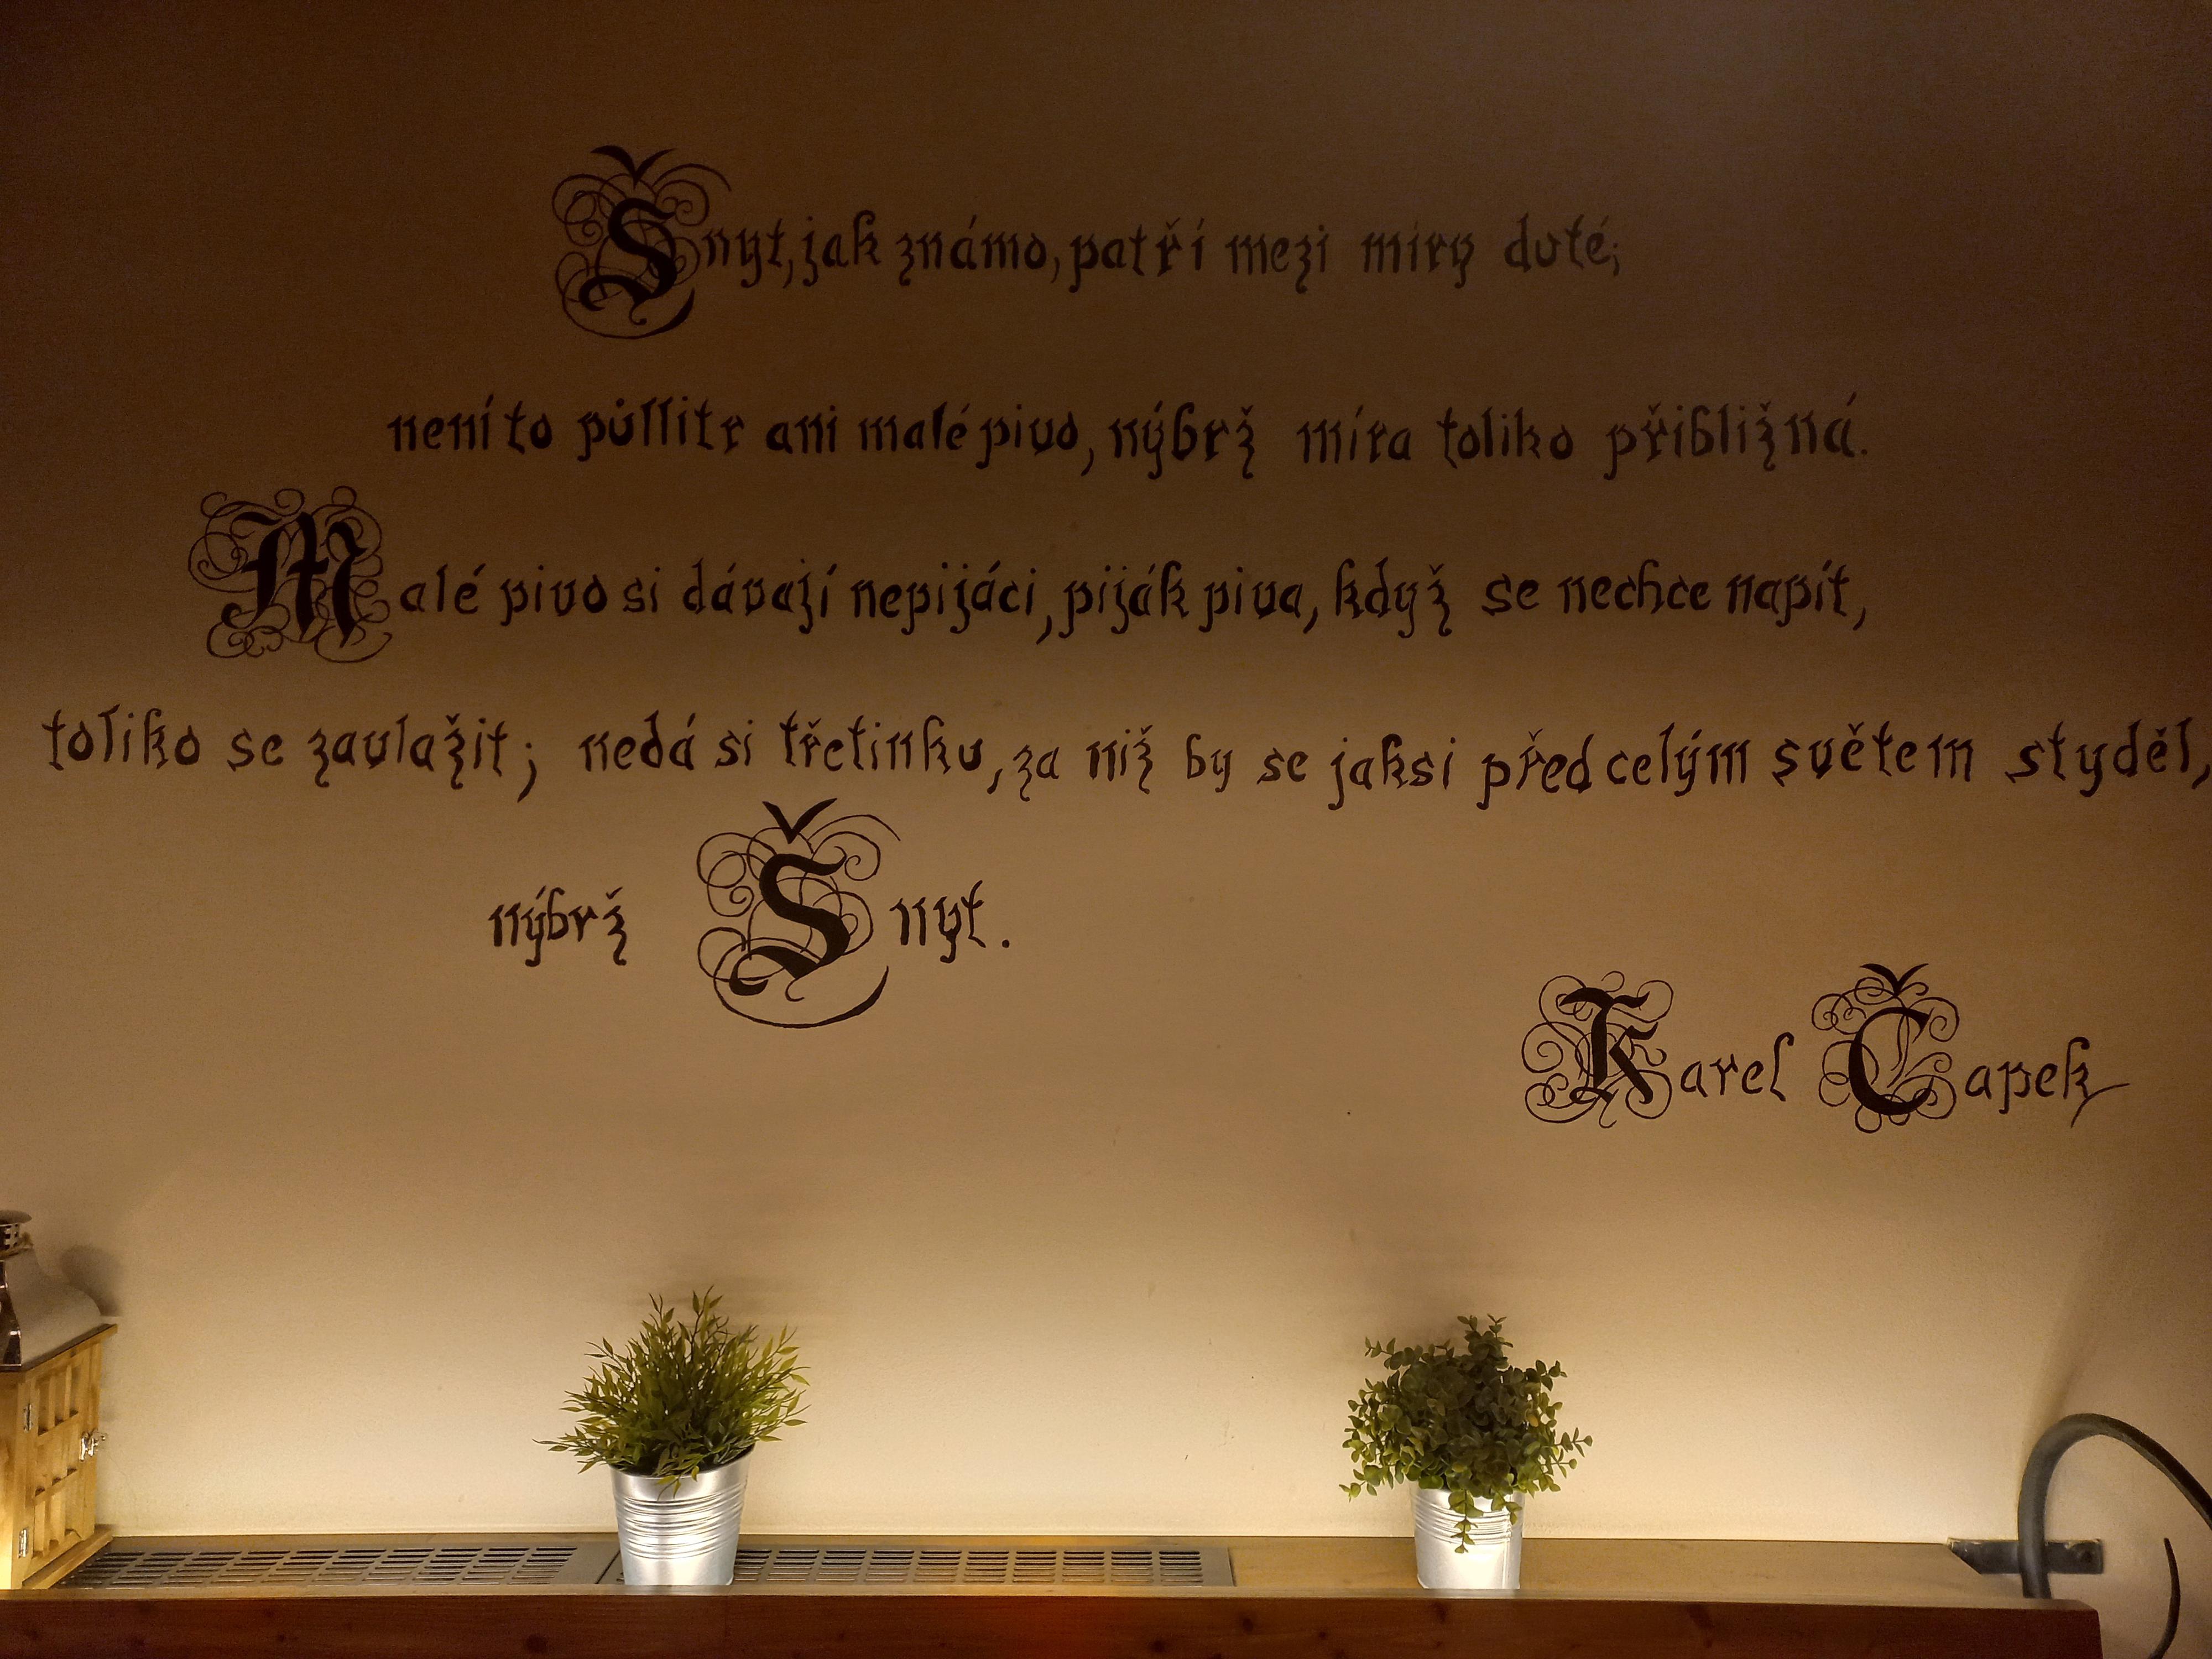 Šnyt, jak známo, patří mezi míry duté;
není to půllitr ani malé pivo, nýbrž míra toliko přibližná.
Malé pivo si dávají nepijáci, piják piva, když se nechce napít,
toliko se zavlažit; nedá si třetinku, za niž by se jaksi před celým světem styděl,
nýbrž Šnyt.
Karel Čapek